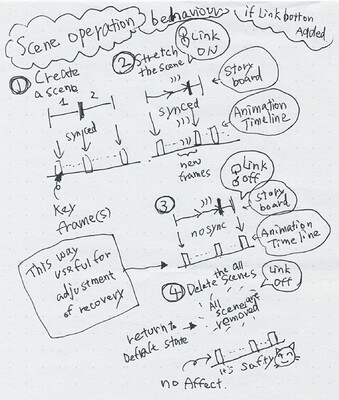 Scene operation behaviour
if Link button
Added
① Create
a scene
1 2
synced
Key
frame(s)
② Stretch
the scene
Link
ON
synced
Story
board
Animation
Timeline
new
frames
③
Link
off
no sync
Story
board
Animation
Timeline
This way
useful for
adjustment
of recovery
④ Delete the all
scenes
Link
off
All
scene are
removed
return to
Default state
it's safty
no Affect.